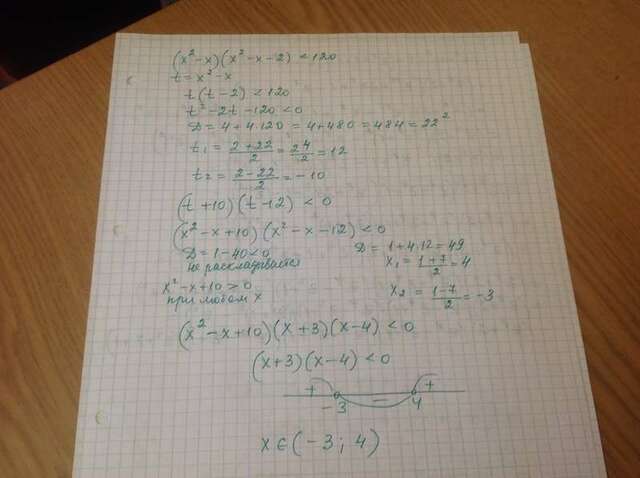 (x² - x)(x² - x - 2) < 120
t = x² - x
t(t - 2) < 120
t² - 2t - 120 < 0
D = 4 + 4·120 = 4 + 480 = 484 = 22²
t₁ = (2 + 22)/2 = 24/2 = 12
t₂ = (2 - 22)/2 = -10
(t + 10)(t - 12) < 0
(x² - x + 10)(x² - x - 12) < 0
D = 1 - 40 < 0
не раскладывается
x² - x + 10 > 0
при любом x
D = 1 + 4·12 = 49
x₁ = (1 + 7)/2 = 4
x₂ = (1 - 7)/2 = -3
(x² - x + 10)(x + 3)(x - 4) < 0
(x + 3)(x - 4) < 0
+ - +
-3 4
x ∈ (-3; 4)